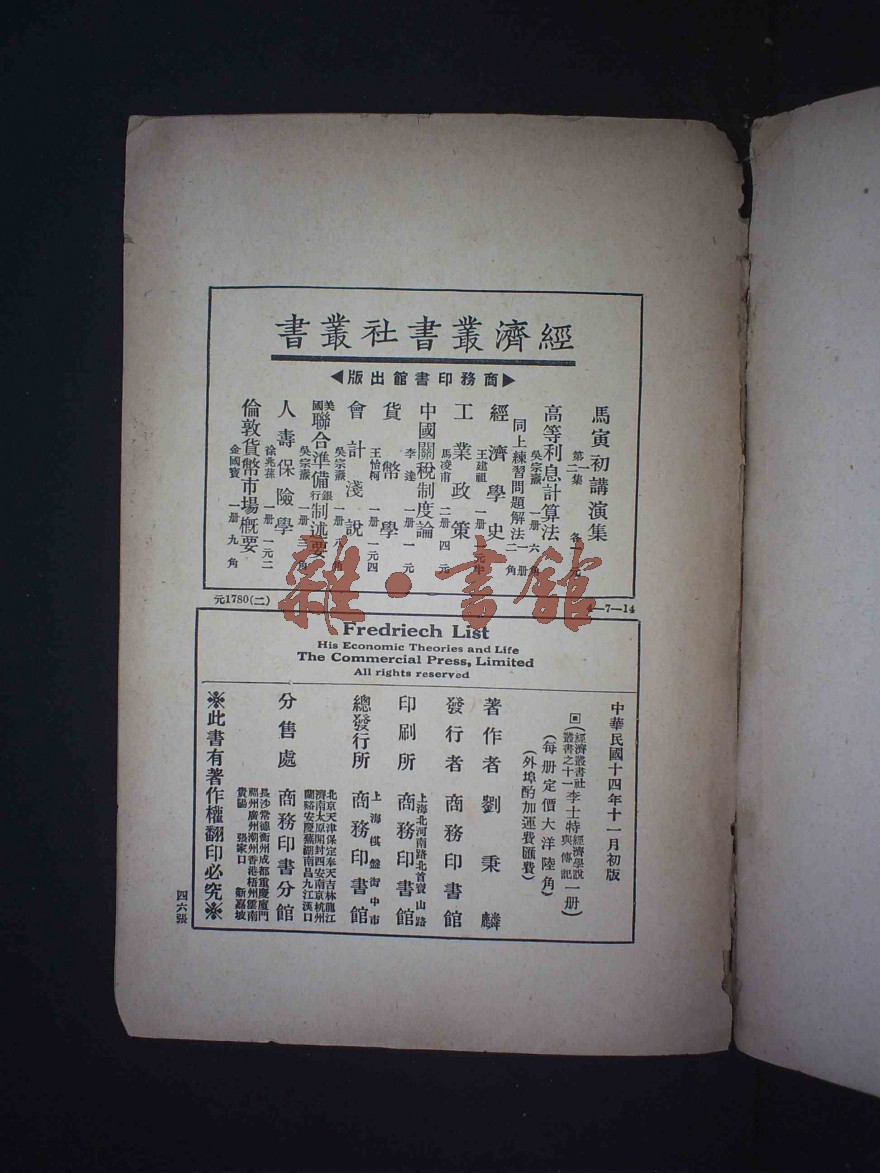 經濟叢書社叢書
▶商務印書館出版◀
馬寅初講演集 第一集 第二集 各一元
高等利息計算法 吳宗燾 一册 六角
同上練習問題解法 一册 二角
經濟學史 王建祖 一册 一元半
工業政策 馬凌甫 二册 四元
中國關税制度論 李達 一册 一元
貨幣學 王怡柯 一册 一元四
會計淺說 吳宗燾 一册 八角
美國聯合準備銀行制述要 吳宗燾 一册 三角
人壽保險學 徐兆蓀 一册 一元二
倫敦貨幣市場概要 金國寶 一册 九角
元1780(二)
4—7—14
雜·書館
Fredriech List
His Economic Theories and Life
The Commercial Press, Limited
All rights reserved
中華民國十四年十一月初版
(經濟叢書社叢書之十一 李士特經濟學說與傳記 一册)
(每册定價大洋陸角)
(外埠酌加運費匯費)
著作者 劉秉麟
發行者 商務印書館
印刷所 上海北河南路北首寶山路 商務印書館
總發行所 上海棋盤街中市 商務印書館
分售處 商務印書分館
北京天津保定奉天吉林龍江
濟南太原開封西安南京杭州
蘭谿安慶蕪湖南昌九江漢口
長沙常德衡州成都重慶廈門
福州廣州潮州香港梧州雲南
貴陽 張家口 新嘉坡
※此書有著作權翻印必究※
四六張